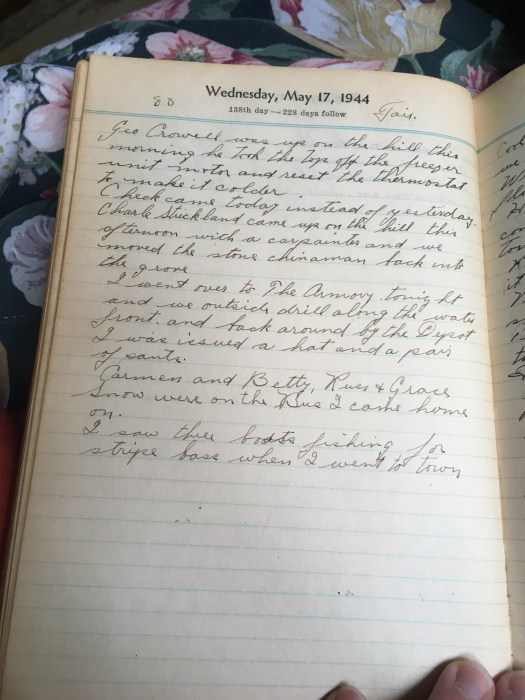 Wednesday, May 17, 1944
138th day — 228 days follow
80
Fair.
Geo Crowell was up on the hill this
morning he took the top off the freezer
unit motor and reset the thermostat
to make it colder.
Check came today instead of yesterday.
Charle Stuckland came up on the hill this
afternoon with a carpainter and we
moved the stone chinaman back into
the grove
I went over to The Armory tonight
and we outside drill along the water
front. and back around by the Depot
I was issued a hat and a pair
of pants.
Carmen and Betty, Russ & Grace
Snow were on the Bus I came home
on.
I saw three boats fishing for
stripe bass when I went to town